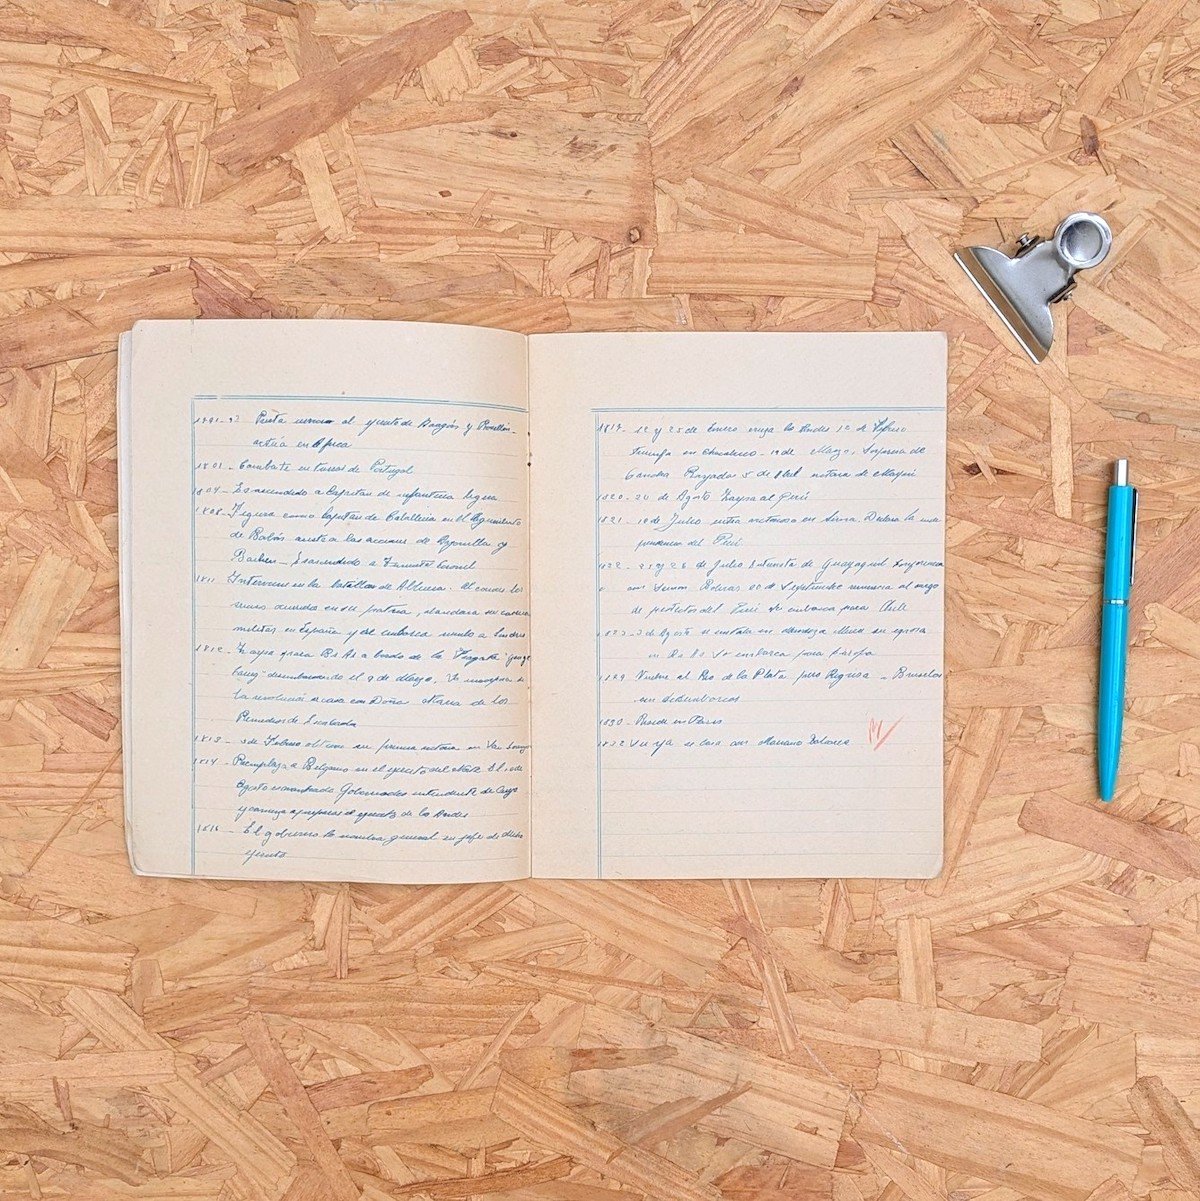 1791-93 Presta servicio al ejercito de Aragón y Rosellón-
actúa en Africa
1801 - Combate en tierras de Portugal
1804 - Es ascendido a Capitan de infanteria ligera
1808 - Figura como Capitan de Caballeria en el Regimiento
de asiste a las acciones de y
Bailen - Es ascendido a Teniente Coronel
1811 Interviene en la batalla de Albuera. Al conocer los
en su patria, su carrera
militar en España y se embarca rumbo a Londres
1812 - Zarpa para Bs As a bordo de la Fragata "George
desembarcando el 9 de Marzo, Se incorpora a
la revolución se casa con Doña Maria de los
Remedios de Escalada
1813 - 3 de Febrero obtiene su primera victoria en San Lorenzo
1814 - Reemplaza a Belgrano en el ejército del Norte El 10 de
Agosto es nombrado Gobernador intendente de Cuyo
y comienza a preparar el ejercito de los Andes
1816 - El gobierno lo nombra general en jefe de dicho
ejercito
1817 - 12 y 25 de Enero cruza los Andes 12 de Febrero
triunfa en Chacabuco - 19 de Marzo, Sorpresa de
Cancha Rayada 5 de Abril victoria de Maipú
1820 - 20 de Agosto Zarpa al Perú
1821 - 10 de Julio entra victorioso en Lima Declara la inde
pendencia del Perú
1822 - 25 y 26 de Julio Entrevista de Guayaquil
con Simon Bolivar 20 de Septiembre renuncia al cargo
de protector del Perú Se embarca para Chile
1823 - 3 de Agosto se instala en Mendoza su esposa
en Bs As Se embarca para Europa
1829 Vuelve al Rio de la Plata pero Regresa - Bruselas
sin desembarcar
1830 - Reside en Paris
1832 Su hija se casa con Mariano Balcarce